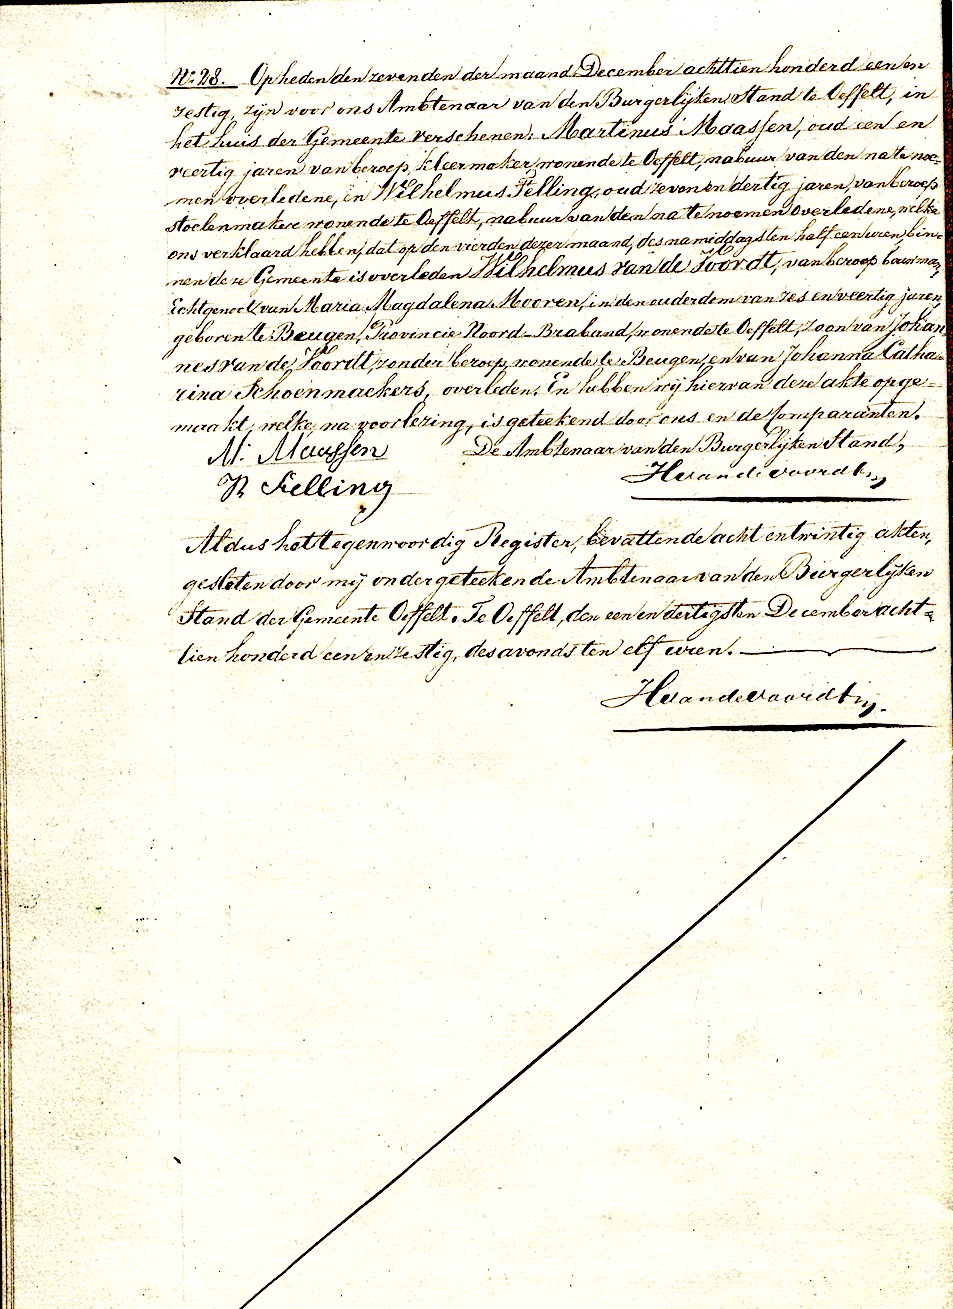 No. 28. Op heden den zevenden der maand December achttien honderd een en
zestig, zijn voor ons Ambtenaar van den Burgerlijken Stand te Oeffelt, in
het huis der Gemeente verschenen: Martinus Maassen, oud een en
veertig jaren van beroep kleermaker, wonende te Oeffelt, nabuur van den na te noe-
men overledene, en Wilhelmus Felling, oud zeven en dertig jaren, van beroep
stoelenmaker wonende te Oeffelt, nabuur van den na te noemen overledene, welke
ons verklaard hebben, dat op den vierden dezer maand, des namiddags ten half een uren, bin-
nen deze Gemeente is overleden Wilhelmus van de Voordt, van beroep bouwman,
Echtgenoot van Maria Magdalena Mooren, in den ouderdom van zes en veertig jaren,
geboren te Beugen, Provincie Noord-Braband, wonende te Oeffelt, zoon van Johan
nes van de Voordt, zonder beroep, wonende te Beugen, en van Johanna Catha-
rina Schoenmaekers, overleden. En hebben wij hiervan deze akte opge-
maakt, welke, na voorlezing, is geteekend door ons en de comparanten.
M. Maassen De Ambtenaar van den Burgerlijken Stand,
W Felling Hvandevoordt
Aldus het tegenwoordig Register, bevattende acht en twintig akten,
gesloten door mij ondergeteekende Ambtenaar van den Burgerlijken
Stand der Gemeente Oeffelt. Te Oeffelt, den een en dertigsten December acht-
tien honderd een en zestig, des avonds ten elf uren.
Hvandevoordt